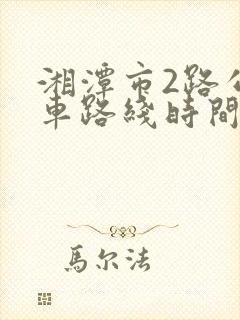 湘潭市2路公
車路綫時間
馬尔法